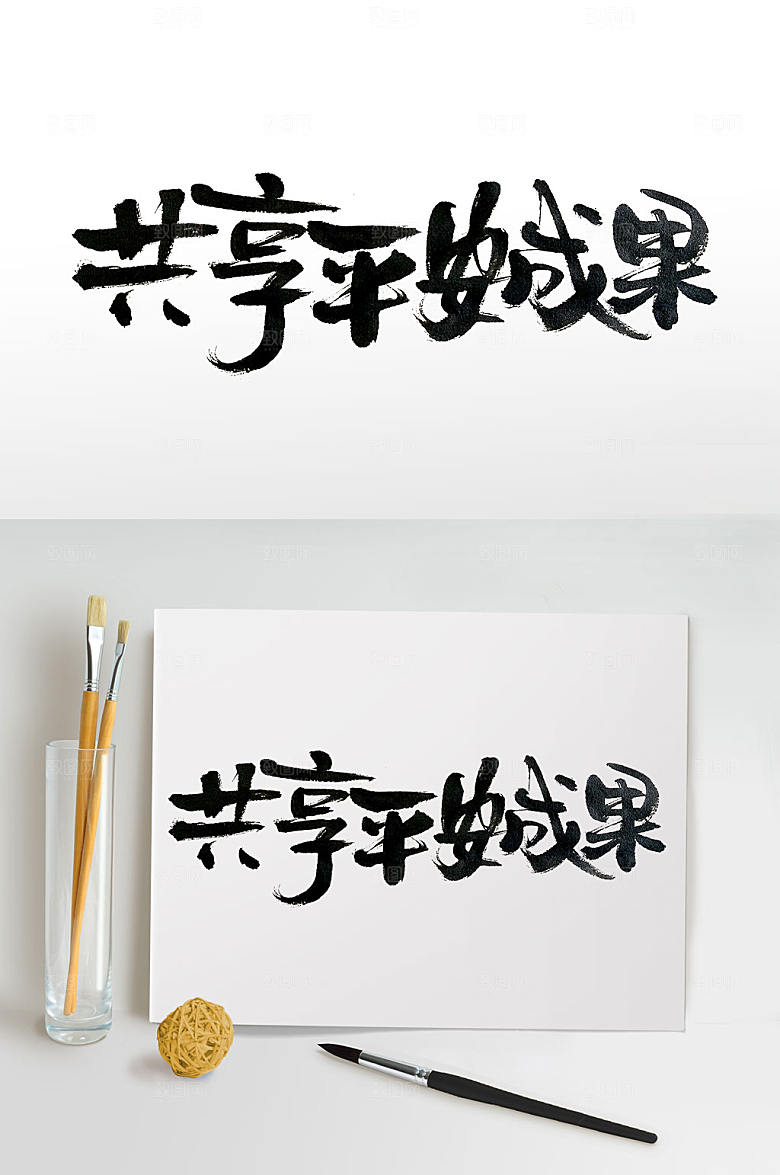 共享平安成果
共享平安成果